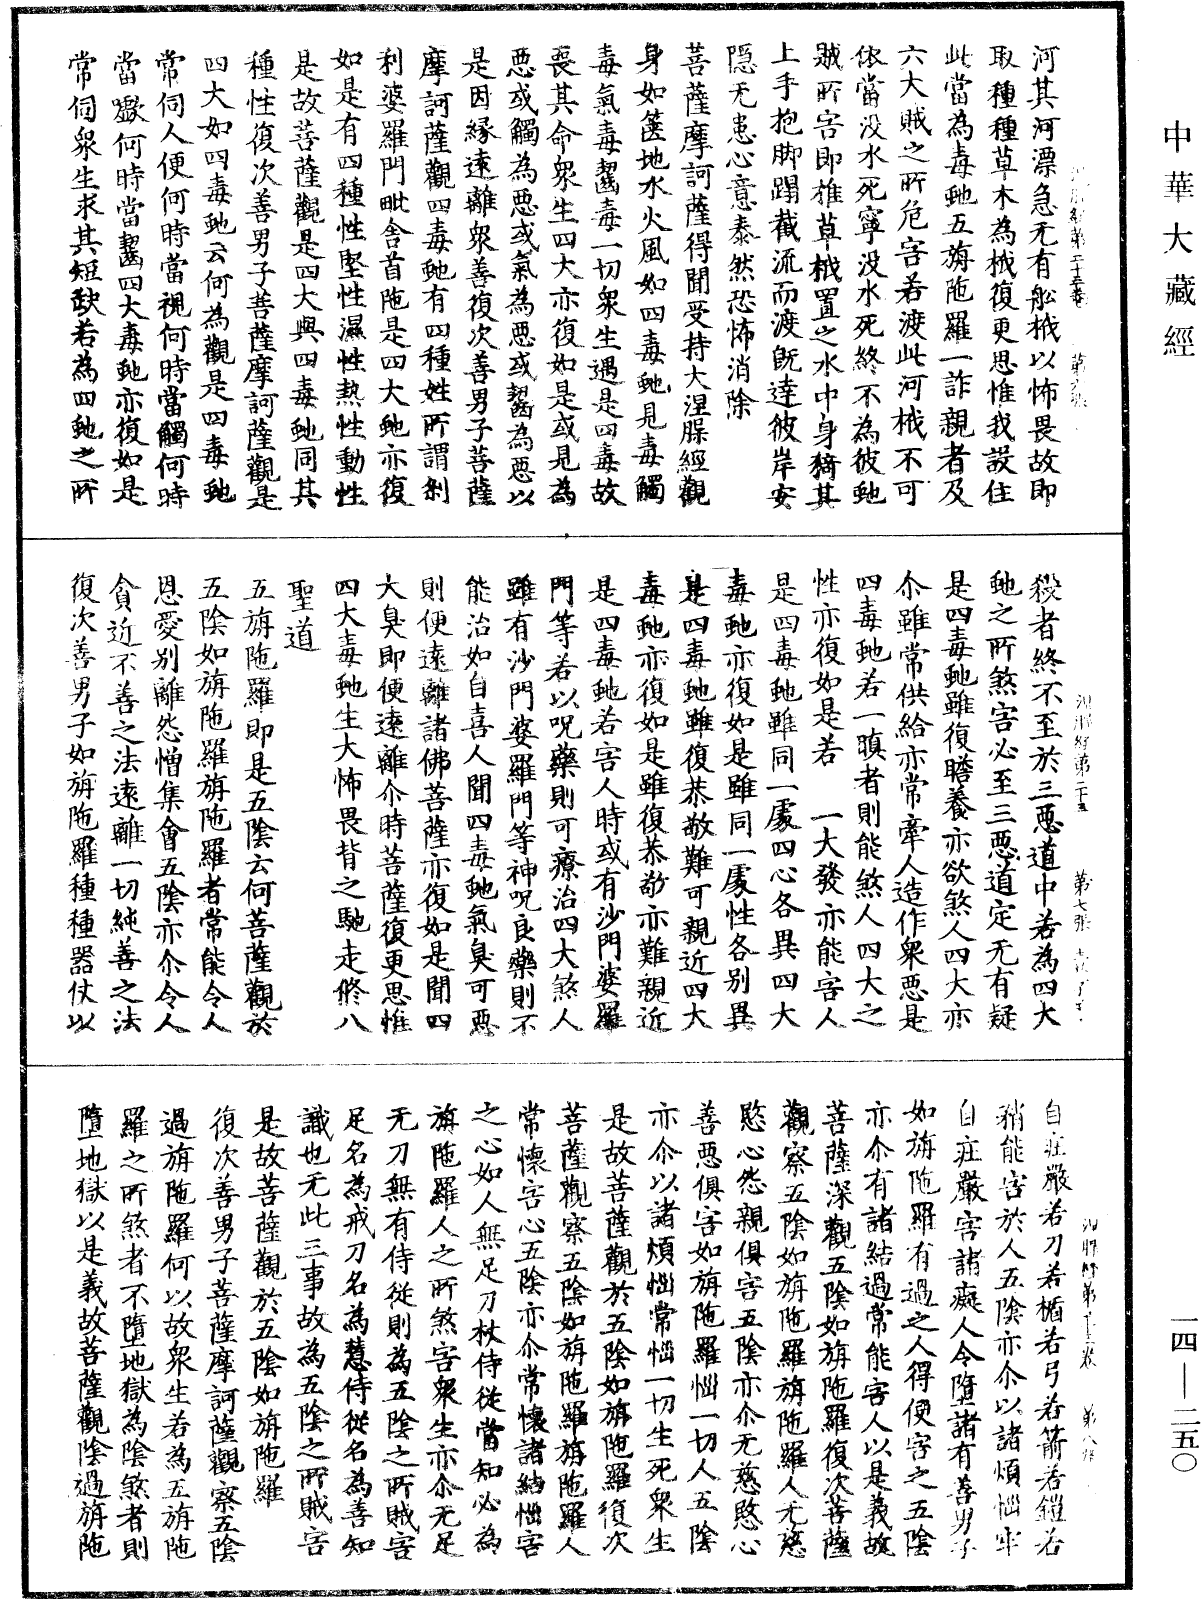 中華大藏經
河其河漂急无有舩栰以怖畏故即
取種種草木為栰復更思惟我設住
此當為毒虵五旃陁羅一詐親者及
六大賊之所危害若渡此河栰不可
依當没水死寧没水死終不為彼虵
賊所害即推草栰置之水中身猗其
上手抱脚蹋截流而渡旣達彼岸安
隱无患心意泰然恐怖消除
菩薩摩訶薩得聞受持大涅槃經觀
身如篋地水火風如四毒虵見毒觸
毒氣毒齧毒一切衆生遇是四毒故
喪其命衆生四大亦復如是或見為
惡或觸為惡或氣為惡或齧為惡以
是因緣遠離衆善復次善男子菩薩
摩訶薩觀四毒虵有四種姓所謂刹
利婆羅門毗舍首陁是四大虵亦復
如是有四種性堅性濕性熱性動性
是故菩薩觀是四大與四毒虵同其
種性復次善男子菩薩摩訶薩觀是
四大如四毒虵云何為觀是四毒虵
常伺人便何時當視何時當觸何時
當歠何時當齧四大毒虵亦復如是
常伺衆生求其短缺若為四虵之所
涅槃經第二十五 第七張
殺者終不至於三惡道中若為四大
虵之所煞害必至三惡道定无有疑
是四毒虵雖復瞻養亦欲煞人四大亦
尒雖常供給亦常牽人造作衆惡是
四毒虵若一瞋者則能煞人四大之
性亦復如是若 一大發亦能害人
是四毒虵雖同一處四心各異四大
毒虵亦復如是雖同一處性各別異
是四毒虵雖復恭敬難可親近四大
毒虵亦復如是雖復恭敬亦難親近
是四毒虵若害人時或有沙門婆羅
門等若以呪藥則可療治四大煞人
雖有沙門婆羅門等神呪良藥則不
能治如自喜人聞四毒虵氣臭可惡
則便遠離諸佛菩薩亦復如是聞四
大臭即便遠離尒時菩薩復更思惟
四大毒虵生大怖畏背之馳走脩八
聖道
五旃陁羅即是五陰云何菩薩觀於
五陰如旃陁羅旃陁羅者常能令人
恩愛別離怨憎集會五陰亦尒令人
貪近不善之法遠離一切純善之法
復次善男子如旃陁羅種種器仗以
自莊嚴若刀若楯若弓若箭若鎧若
矟能害於人五陰亦尒以諸煩惱牢
自莊嚴害諸癡人令墮諸有善男子
如旃陁羅有過之人得便害之五陰
亦尒有諸結過常能害人以是義故
菩薩深觀五陰如旃陁羅復次菩薩
觀察五陰如旃陁羅旃陁羅人无慈
愍心怨親俱害五陰亦尒无慈愍心
善惡俱害如旃陁羅惱一切人五陰
亦尒以諸煩惱常惱一切生死衆生
是故菩薩觀於五陰如旃陁羅復次
菩薩觀察五陰如旃陁羅旃陁羅人
常懷害心五陰亦尒常懷諸結惱害
之心如人無足刀杖侍從當知必為
旃陁羅人之所煞害衆生亦尒无足
无刀無有侍從則為五陰之所賊害
足名為戒刀名為慧侍從名為善知
識也无此三事故為五陰之所賊害
是故菩薩觀於五陰如旃陁羅
復次善男子菩薩摩訶薩觀察五陰
過旃陁羅何以故衆生若為五旃陁
羅之所煞者不墮地獄為陰煞者則
墮地獄以是義故菩薩觀陰過旃陁
一四—二五〇